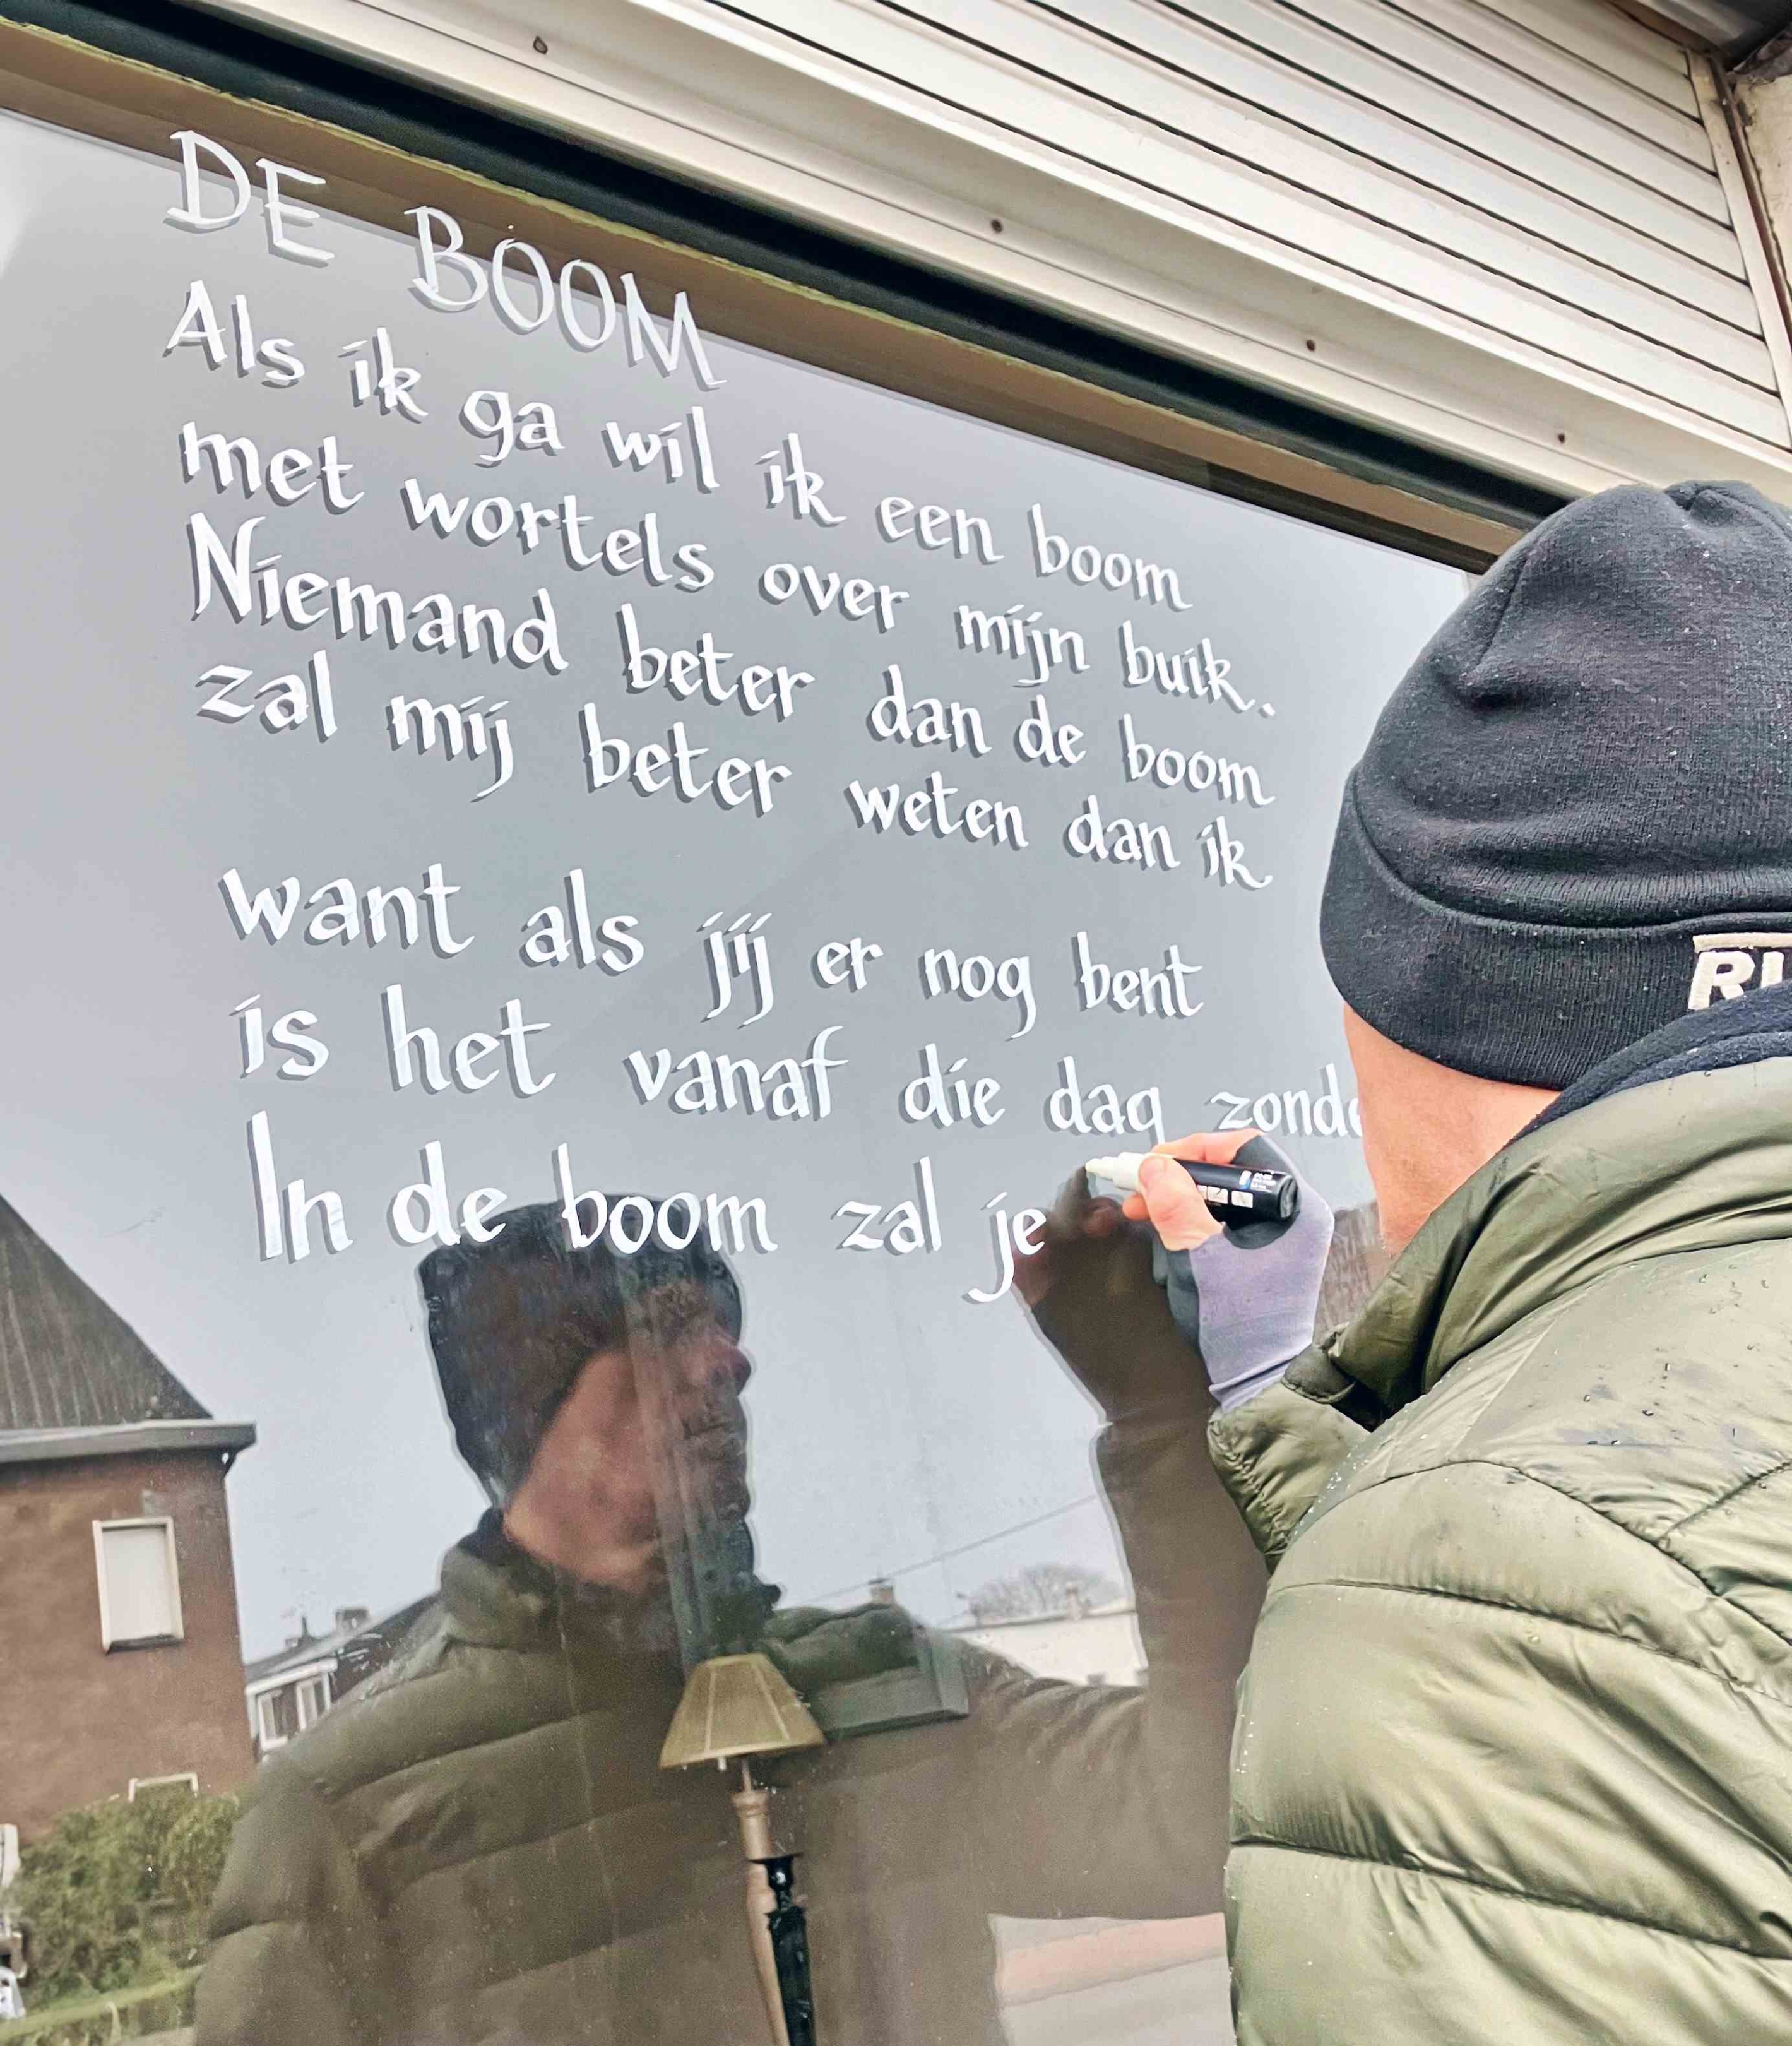 DE BOOM
Als ik ga wil ik een boom
met wortels over mijn buik.
Niemand beter dan de boom
zal mij beter weten dan ik
want als jij er nog bent
is het vanaf die dag
In de boom zal je